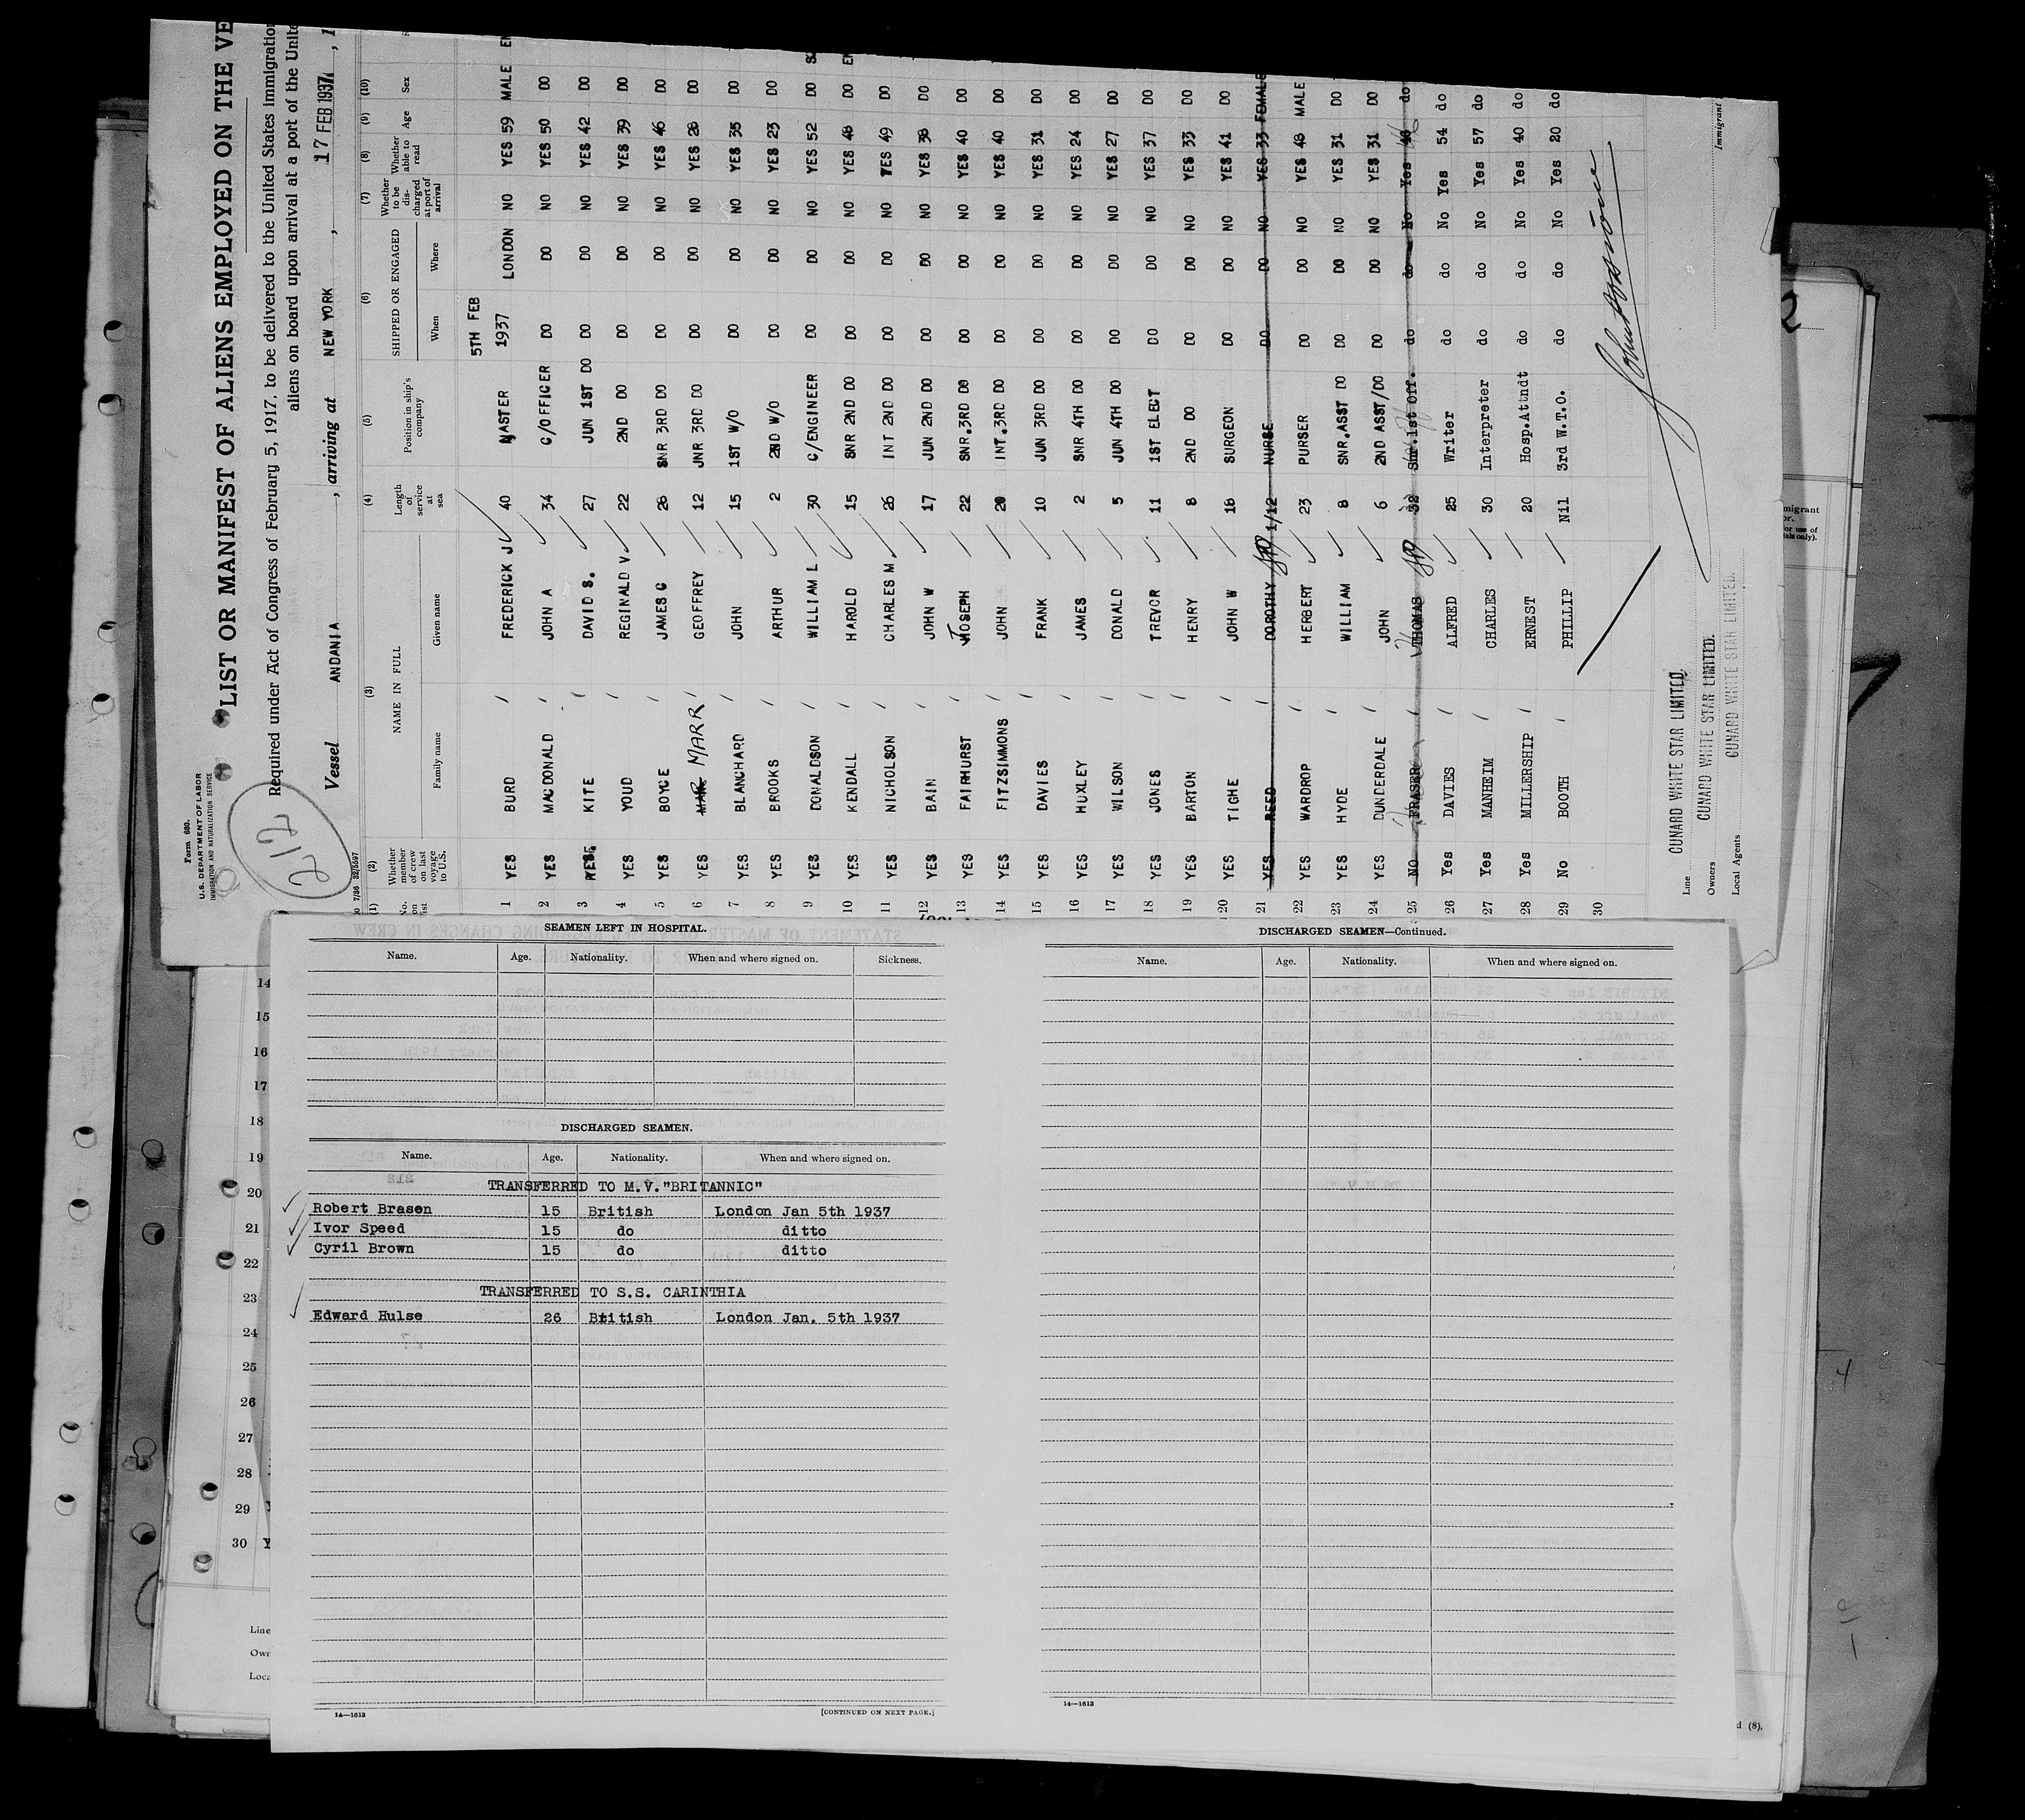 Form 680.
U.S. DEPARTMENT OF LABOR
IMMIGRATION AND NATURALIZATION SERVICE
212
LIST OR MANIFEST OF ALIENS EMPLOYED ON THE VE
Required under Act of Congress of February 5, 1917, to be delivered to the United States immigration
aliens on board upon arrival at a port of the Unite
Vessel ANDANIA , arriving at NEW YORK , 17 FEB 1937 , 1
(1) (2) (3) (4) (5) (6) (7) (8) (9) (10)
No. on list Whether member of crew on last voyage to U.S. NAME IN FULL Family name Given name Length of service at sea Position in ship's company SHIPPED OR ENGAGED When Where Whether to be discharged at port of arrival Whether able to read Age Sex
5TH FEB
1 YES BURD FREDERICK J 40 MASTER 1937 LONDON NO YES 59 MALE EN
2 YES MACDONALD JOHN A 34 C/OFFICER DO DO NO YES 50 DO
3 YES KITE DAVID S. 27 JUN 1ST DO DO DO NO YES 42 DO
4 YES YOUD REGINALD V. 22 2ND DO DO DO NO YES 39 DO
5 YES BOYCE JAMES C 28 SNR 3RD DO DO DO NO YES 46 DO
6 YES MAR MARR GEOFFREY 12 JNR 3RD DO DO DO NO YES 28 DO
7 YES BLANCHARD JOHN 15 1ST W/O DO DO NO YES 35 DO
8 YES BROOKS ARTHUR 2 2ND W/O DO DO NO YES 23 DO
9 YES DONALDSON WILLIAM L 30 C/ENGINEER DO DO NO YES 52 DO SC
10 YES KENDALL HAROLD 15 SNR 2ND DO DO DO NO YES 48 DO EN
11 YES NICHOLSON CHARLES M. 26 INT 2ND DO DO DO NO YES 49 DO
12 YES BAIN JOHN W 17 JUN 2ND DO DO DO NO YES 38 DO
13 YES FAIRHURST JOSEPH 22 SNR.3RD DO DO DO NO YES 40 DO
14 YES FITZSIMMONS JOHN 20 INT.3RD DO DO DO NO YES 40 DO
15 YES DAVIES FRANK 10 JUN 3RD DO DO DO NO YES 31 DO
16 YES HUXLEY JAMES 2 SNR 4TH DO DO DO NO YES 24 DO
17 YES WILSON DONALD 5 JUN 4TH DO DO DO NO YES 27 DO
18 YES JONES TREVOR 11 1ST ELECT DO DO NO YES 37 DO
19 YES BARTON HENRY 8 2ND DO DO DO NO YES 33 DO
20 YES TIGHE JOHN W 18 SURGEON DO DO NO YES 41 DO
21 YES REED DOROTHY 1/12 NURSE DO DO NO YES 33 FEMALE
22 YES WARDROP HERBERT 23 PURSER DO DO NO YES 48 MALE
23 YES HYDE WILLIAM 8 SNR.ASST DO DO DO NO YES 31 DO
24 YES DUNDERDALE JOHN 6 2ND ASST/DO DO DO NO YES 31 DO
25 NO FRASER THOMAS 32 Snr.1st Off. do do No Yes 46 do
26 Yes DAVIES ALFRED 25 Writer do do No Yes 54 do
27 Yes MANHEIM CHARLES 30 Interpreter do do No Yes 57 do
28 Yes MILLERSHIP ERNEST 20 Hosp.Attndt do do No Yes 40 do
29 No BOOTH PHILLIP Nil 3rd W.T.O. do do No Yes 20 do
30
Line CUNARD WHITE STAR LIMITED.
Owners CUNARD WHITE STAR LIMITED.
Local Agents CUNARD WHITE STAR LIMITED.
Immigrant
SEAMEN LEFT IN HOSPITAL.
Name. Age. Nationality. When and where signed on. Sickness.
DISCHARGED SEAMEN.
Name. Age. Nationality. When and where signed on.
TRANSFERRED TO M.V."BRITANNIC"
Robert Brasen 15 British London Jan 5th 1937
Ivor Speed 15 do ditto
Cyril Brown 15 do ditto
TRANSFERRED TO S.S. CARINTHIA
Edward Hulse 26 British London Jan. 5th 1937
14—1613
[CONTINUED ON NEXT PAGE.]
DISCHARGED SEAMEN—Continued.
Name. Age. Nationality. When and where signed on.
14—1613
14
15
16
17
18
19
20
21
22
23
24
25
26
27
28
29
30 Y
Line
Own
Loca
d (8),